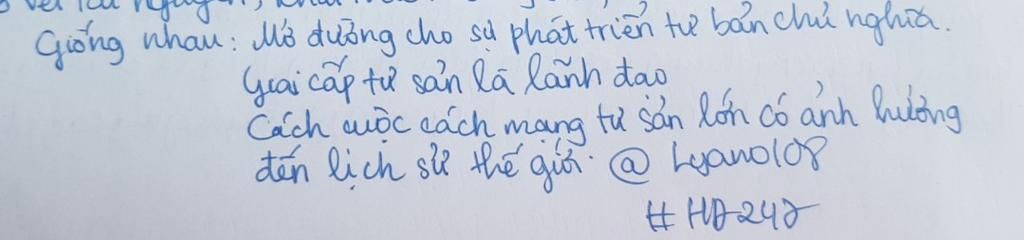 với tài nguyên, khai
Giống nhau: Mở đường cho sự phát triển tư bản chủ nghĩa.
Giai cấp tư sản là lãnh đạo
Cách cuộc cách mạng tư sản lớn có ảnh hưởng
đến lịch sử thế giới. @ Lyano108
# HD247